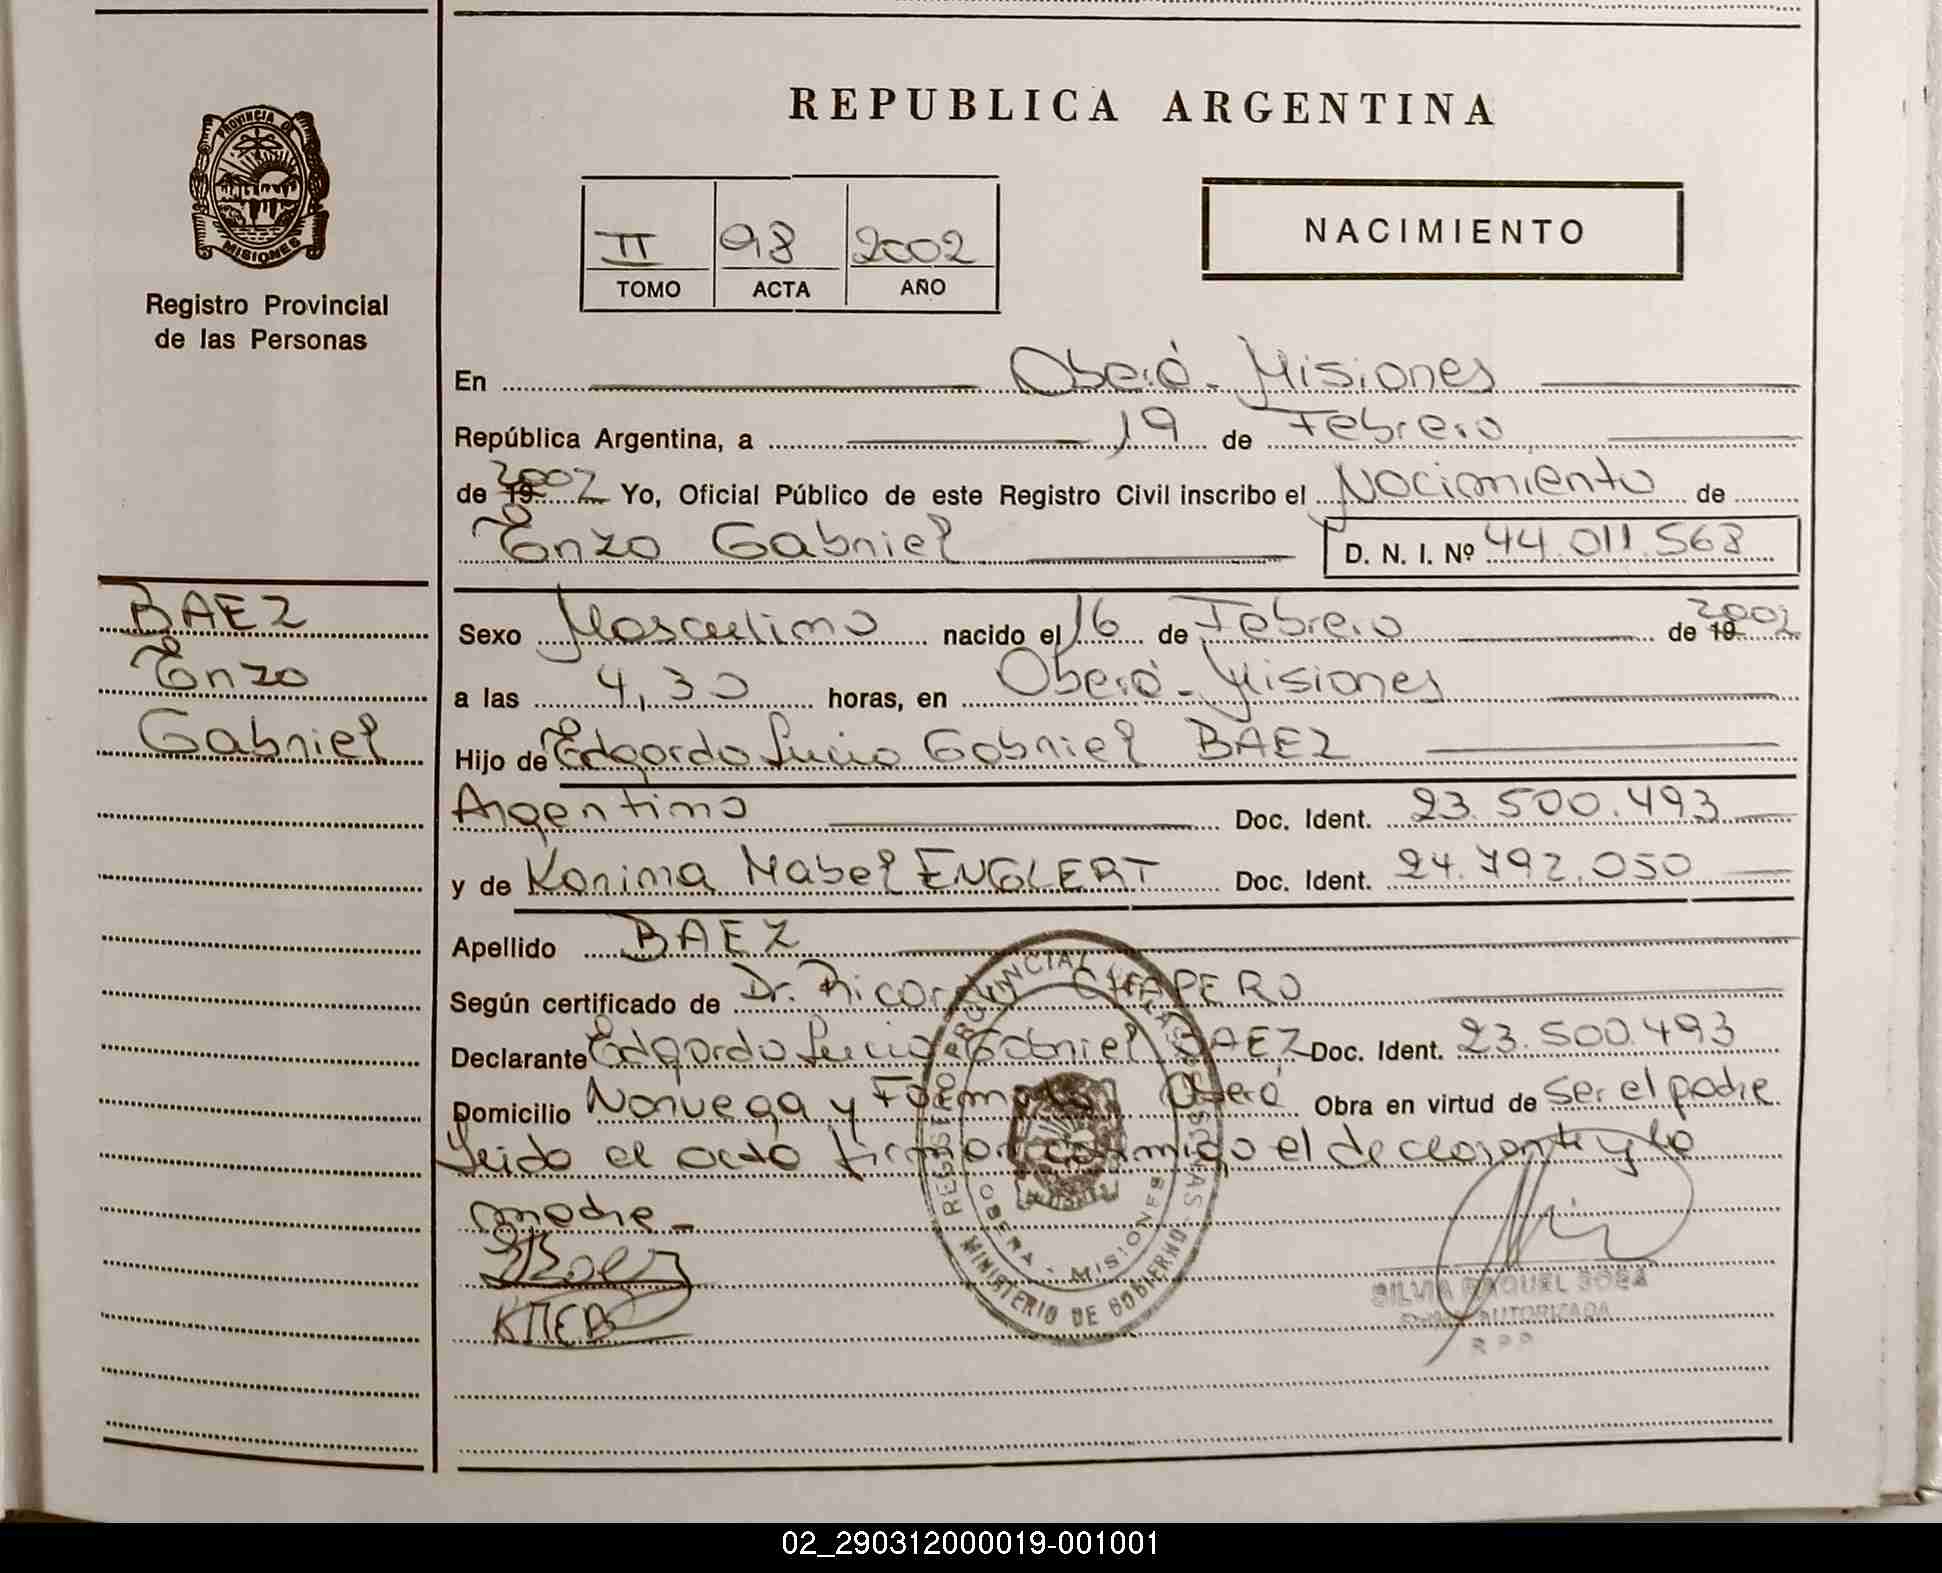 REPUBLICA ARGENTINA
PROVINCIA DE
MISIONES
Registro Provincial
de las Personas
II 98 2002
TOMO ACTA AÑO
NACIMIENTO
En Oberá - Misiones
República Argentina, a 19 de Febrero
de 19 2002 Yo, Oficial Público de este Registro Civil inscribo el Nacimiento de
Enzo Gabriel D. N. I. Nº 44.011.568
BAEZ
Enzo
Gabriel
Sexo Masculino nacido el 16 de Febrero de 19 2002
a las 4,30 horas, en Oberá - Misiones
Hijo de Edgardo Lucio Gabriel BAEZ
Argentino Doc. Ident. 23.500.493
y de Karina Mabel ENGLERT Doc. Ident. 24.792.050
Apellido BAEZ
Según certificado de Dr. Ricardo CHAPERO
Declarante Edgardo Lucio Gabriel BAEZ Doc. Ident. 23.500.493
Domicilio Noruega y Formosa Oberá Obra en virtud de ser el padre
Leida el acta firman conmigo el declarante y la
madre -
REGISTRO PROVINCIAL DE LAS PERSONAS
OBERA - MISIONES
MINISTERIO DE GOBIERNO
Baez
KMEB
SILVIA RAQUEL SOSA
AUTORIZADA
R P P
02_290312000019-001001